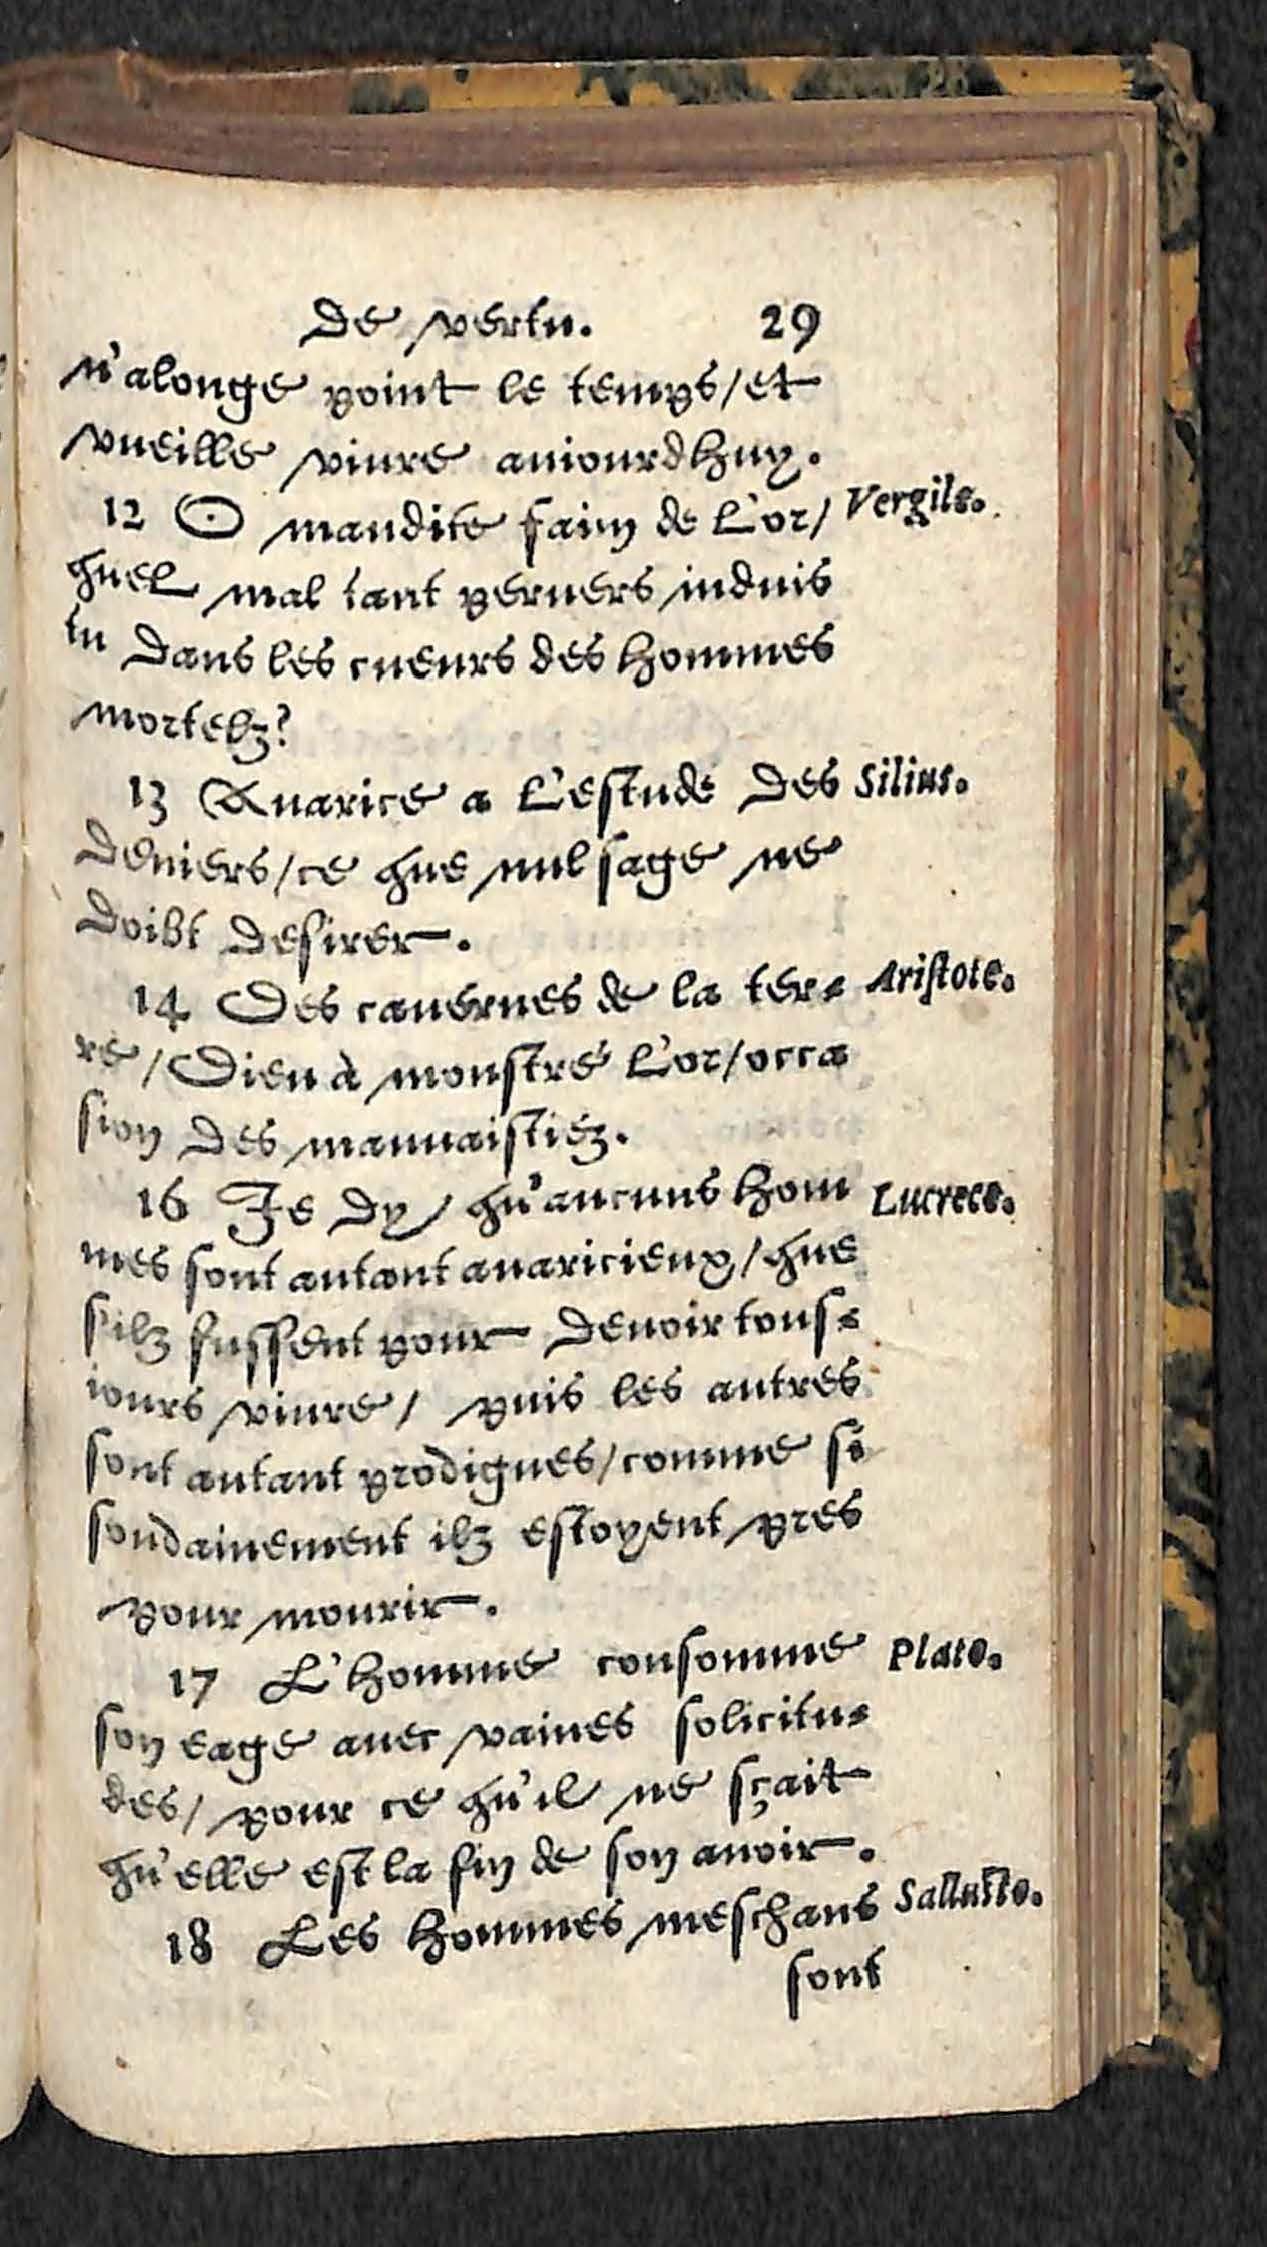 De vertu. 29
n'alonge point le temps/et
vueille viure auiourdhuy.
12 O maudite faim de L'or/ Vergile.
quel mal tant peruers induis
tu dans les cueurs des hommes
mortelz?
13 Auarice a L'estude des Silius.
deniers/ce que nul sage ne
doibt desirer.
14 Des cauernes de la ter= Aristote.
re/Dieu à monstré L'or/occa
sion des mauuaistiéz.
16 Je dy/ qu'aucuns hom Lucrece.
mes sont autant auaricieux/que
s'ilz fussent pour deuoir tous=
iours viure/ puis les autres
sont autant prodigues/comme si
soudainement ilz estoyent pres
pour mourir.
17 L'homme consomme Plato.
son eage auec vaines solicitu=
des/ pour ce qu'il ne sçait
qu'elle est la fin de son auoir.
18 Les hommes meschans Salluste.
sont